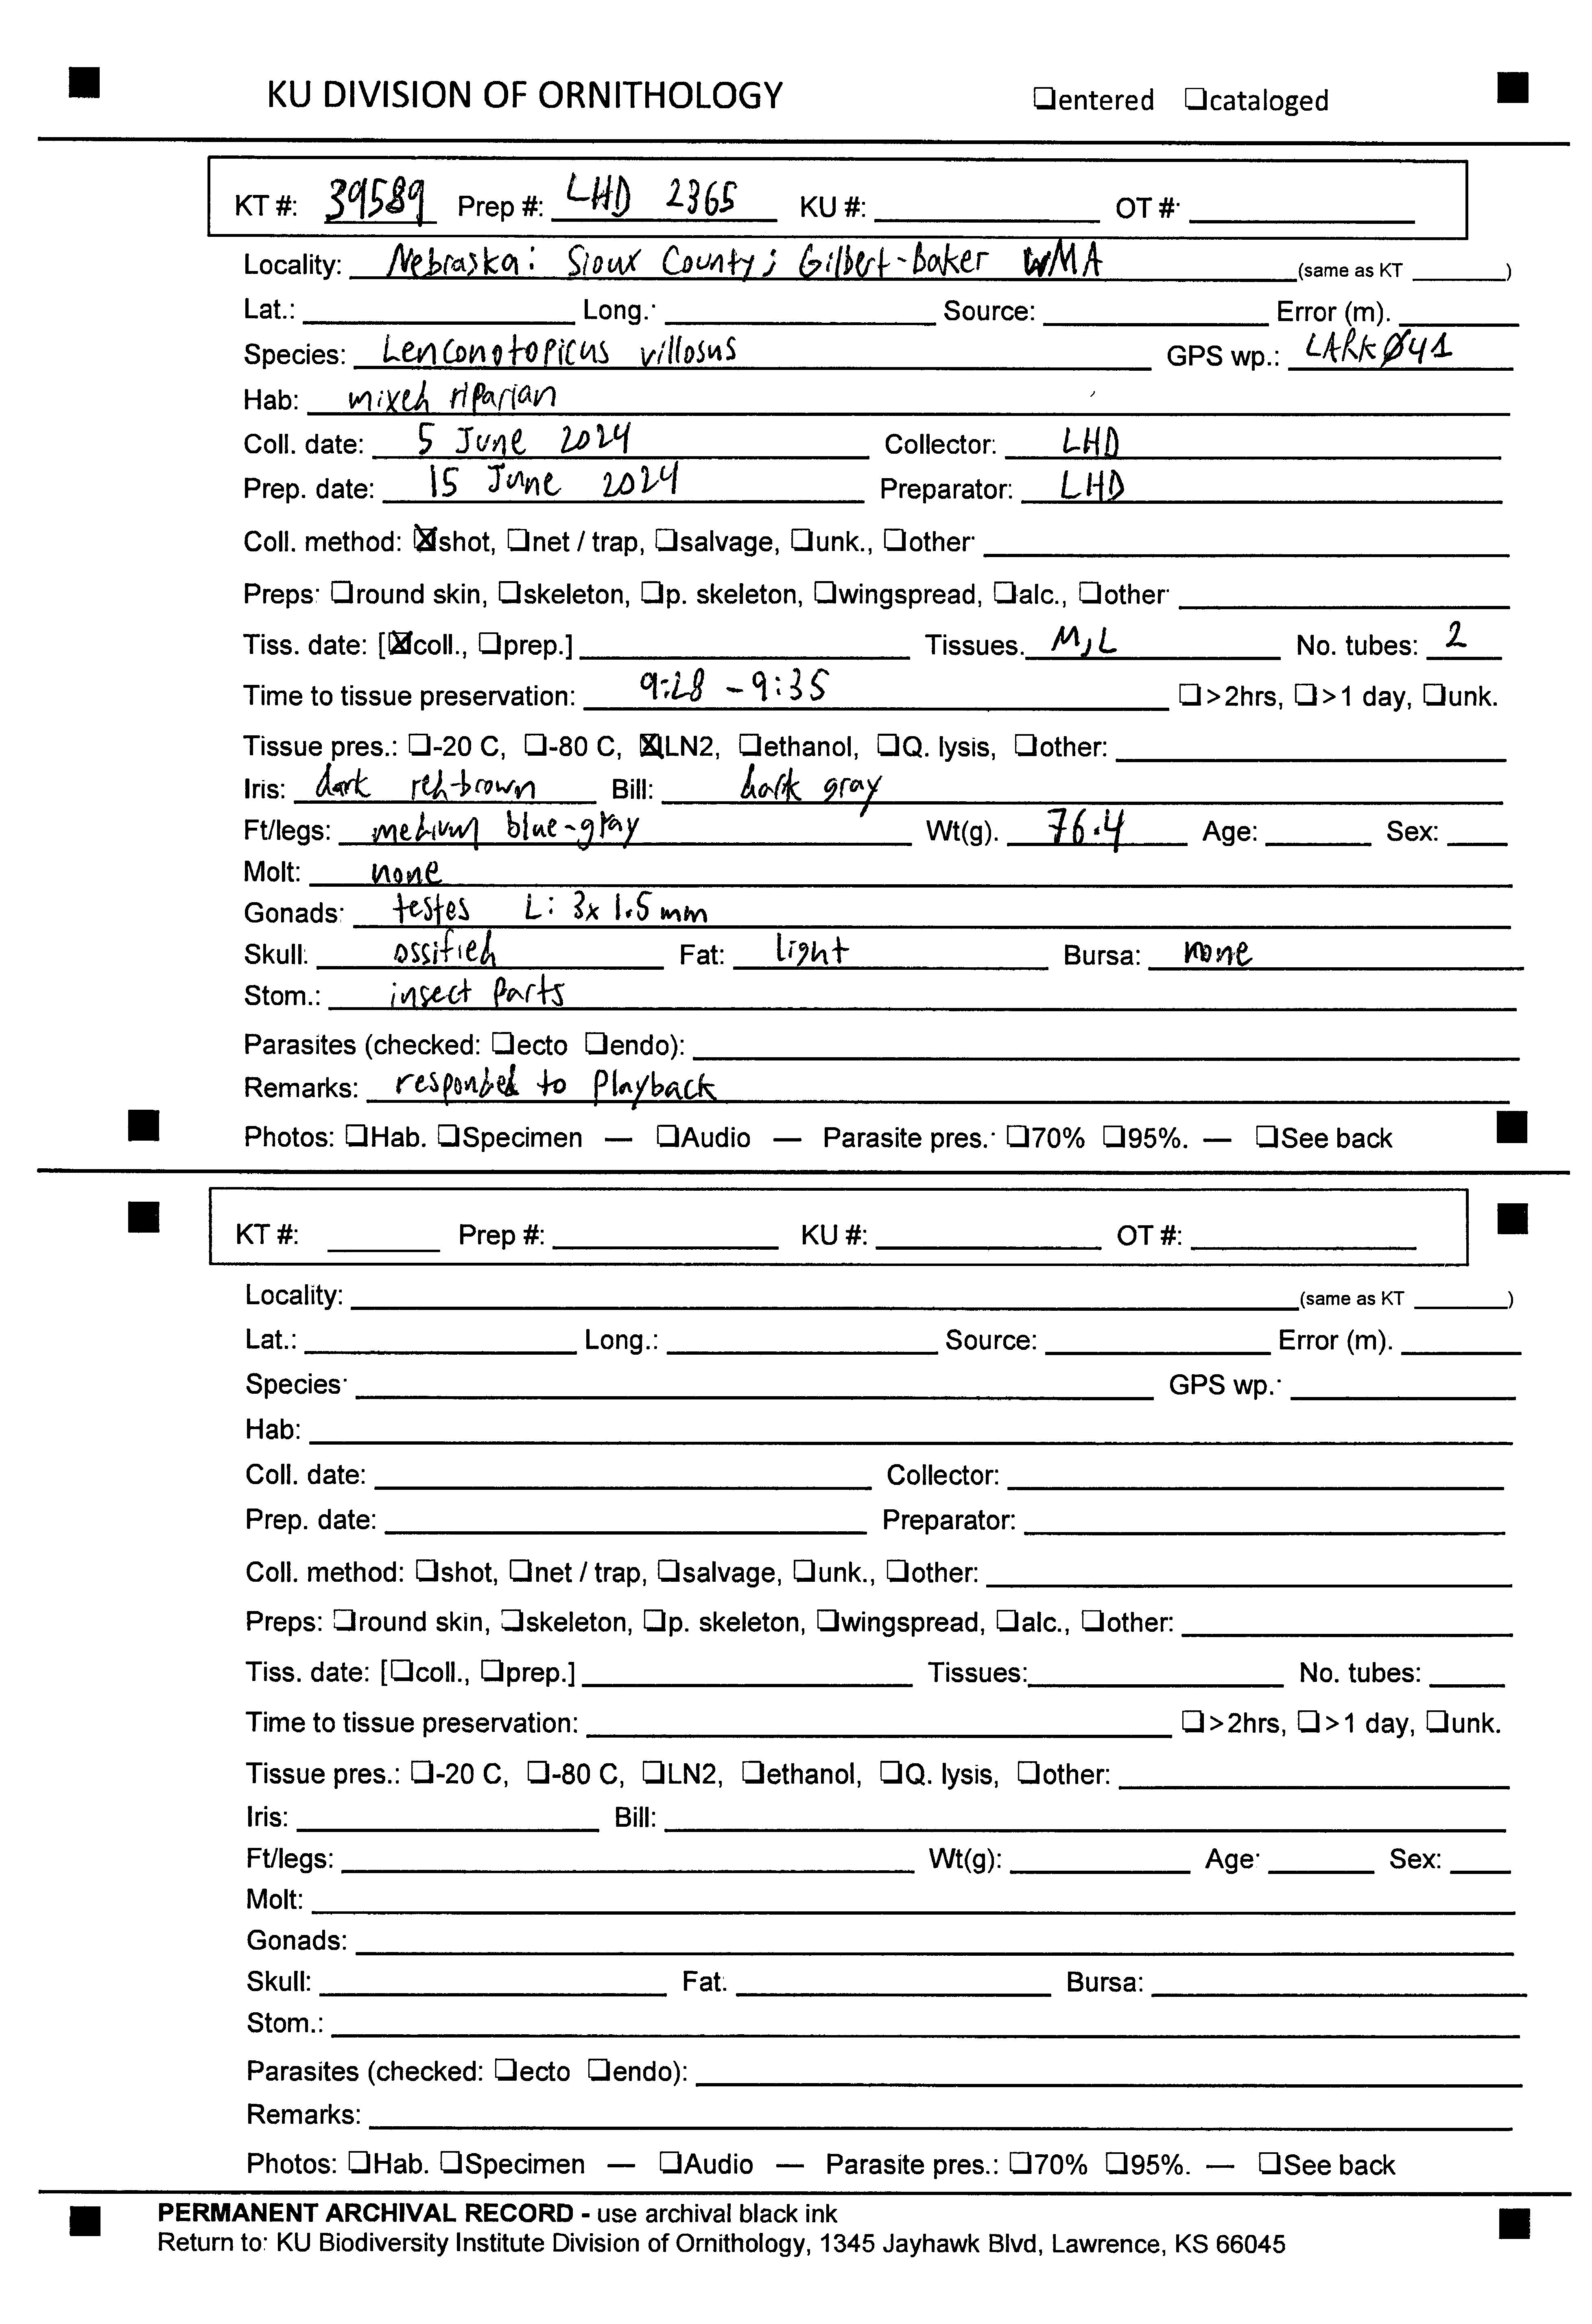 KU DIVISION OF ORNITHOLOGY ❏entered ❏cataloged
KT #: 39589 Prep #: LHD 2365 KU #: OT #:
Locality: Nebraska: Sioux County; Gilbert-Baker WMA (same as KT )
Lat.: Long.: Source: Error (m).
Species: Leuconotopicus villosus GPS wp.: LARKØ41
Hab: mixed riparian
Coll. date: 5 June 2024 Collector: LHD
Prep. date: 15 June 2024 Preparator: LHD
Coll. method: ☒shot, ❏net / trap, ❏salvage, ❏unk., ❏other:
Preps: ❏round skin, ❏skeleton, ❏p. skeleton, ❏wingspread, ❏alc., ❏other:
Tiss. date: [☒coll., ❏prep.] Tissues. M, L No. tubes: 2
Time to tissue preservation: 9:28 - 9:35 ❏>2hrs, ❏>1 day, ❏unk.
Tissue pres.: ❏-20 C, ❏-80 C, ☒LN2, ❏ethanol, ❏Q. lysis, ❏other:
Iris: dark red-brown Bill: dark gray
Ft/legs: medium blue-gray Wt(g). 76.4 Age: Sex:
Molt: none
Gonads: testes L: 3x1.5mm
Skull: ossified Fat: light Bursa: none
Stom.: insect parts
Parasites (checked: ❏ecto ❏endo):
Remarks: responded to playback
Photos: ❏Hab. ❏Specimen — ❏Audio — Parasite pres.: ❏70% ❏95%. — ❏See back
KT #: Prep #: KU #: OT #:
Locality: (same as KT )
Lat.: Long.: Source: Error (m).
Species: GPS wp.:
Hab:
Coll. date: Collector:
Prep. date: Preparator:
Coll. method: ❏shot, ❏net / trap, ❏salvage, ❏unk., ❏other:
Preps: ❏round skin, ❏skeleton, ❏p. skeleton, ❏wingspread, ❏alc., ❏other:
Tiss. date: [❏coll., ❏prep.] Tissues: No. tubes:
Time to tissue preservation: ❏>2hrs, ❏>1 day, ❏unk.
Tissue pres.: ❏-20 C, ❏-80 C, ❏LN2, ❏ethanol, ❏Q. lysis, ❏other:
Iris: Bill:
Ft/legs: Wt(g): Age: Sex:
Molt:
Gonads:
Skull: Fat: Bursa:
Stom.:
Parasites (checked: ❏ecto ❏endo):
Remarks:
Photos: ❏Hab. ❏Specimen — ❏Audio — Parasite pres.: ❏70% ❏95%. — ❏See back
PERMANENT ARCHIVAL RECORD - use archival black ink
Return to: KU Biodiversity Institute Division of Ornithology, 1345 Jayhawk Blvd, Lawrence, KS 66045